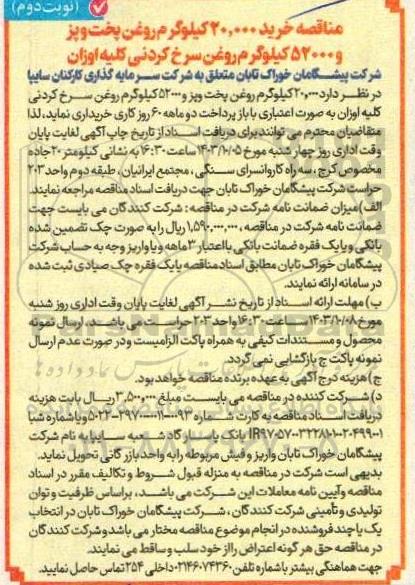 (نوبت دوم)
مناقصه خرید ۲۰,۰۰۰ کیلوگرم روغن پخت و پز
و ۵۲۰۰۰ کیلوگرم روغن سرخ کردنی کلیه اوزان
شرکت پیشگامان خوراک تابان متعلق به شرکت سرمایه گذاری کارکنان سایپا
در نظر دارد ۲۰,۰۰۰ کیلوگرم روغن پخت وپز و ۵۲۰۰۰ کیلوگرم روغن سرخ کردنی
کلیه اوزان به صورت اعتباری با باز پرداخت دو ماهه ۶۰ روز کاری خریداری نماید، لذا
متقاضیان محترم می توانند برای دریافت اسناد از تاریخ چاپ آگهی لغایت پایان
وقت اداری روز چهار شنبه مورخ ۱۴۰۳/۱۰/۰۵ ساعت ۱۶:۳۰ به نشانی کیلومتر ۲۰ جاده
مخصوص کرج، سه راه کاروانسرای سنگی، مجتمع ایرانیان، طبقه دوم واحد ۲۰۳
حراست شرکت پیشگامان خوراک تابان جهت دریافت اسناد مناقصه مراجعه نمایند.
الف) میزان ضمانت نامه شرکت در مناقصه: شرکت کنندگان می بایست جهت
ضمانت نامه شرکت در مناقصه، ۱,۵۹۰,۰۰۰,۰۰۰ ریال را به صورت چک تضمین شده
بانکی و یا یک فقره ضمانت بانکی با اعتبار ۳ ماهه و یا واریز وجه به حساب شرکت
پیشگامان خوراک تابان مطابق اسناد مناقصه یا یک فقره چک صیادی ثبت شده
در سامانه ارائه نمایند.
ب) مهلت ارائه اسناد از تاریخ نشر آگهی لغایت پایان وقت اداری روز شنبه
مورخ ۱۴۰۳/۱۰/۰۸ ساعت ۱۶:۳۰ واحد ۲۰۳ حراست می باشد. ارسال نمونه
محصول و مستندات کیفی به همراه پاکت الزامیست و در صورت عدم ارسال
نمونه پاکت ج بازگشایی نمی گردد.
ج) هزینه درج آگهی به عهده برنده مناقصه خواهد بود.
د) شرکت کننده در مناقصه می بایست مبلغ ۳,۵۰۰,۰۰۰ ریال بابت هزینه
دریافت اسناد مناقصه به کارت شماره ۵۰۲۲-۲۹۷۰-۰۰۱۱-۰۰۹۳ و یا شماره شبا
بانک پاسارگاد شعبه سایپا به نام شرکت
پیشگامان خوراک تابان واریز و فیش مربوطه را به واحد بازرگانی تحویل نماید.
بدیهی است شرکت در مناقصه به منزله قبول شروط و تکالیف مقرر در اسناد
مناقصه وآیین نامه معاملات این شرکت می باشد، براساس ظرفیت و توان
تولیدی و تأمینی شرکت کنندگان، شرکت پیشگامان خوراک تابان در انتخاب
یک یا چند فروشنده در انجام موضوع مناقصه مختار می باشد و شرکت کنندگان
در مناقصه حق هر گونه اعتراض را از خود سلب و ساقط می نمایند.
جهت هماهنگی بیشتر با شماره تلفن ۰۲۱۴۶۰۷۴۳۶۰ داخلی ۲۵۴ تماس حاصل نمایید.